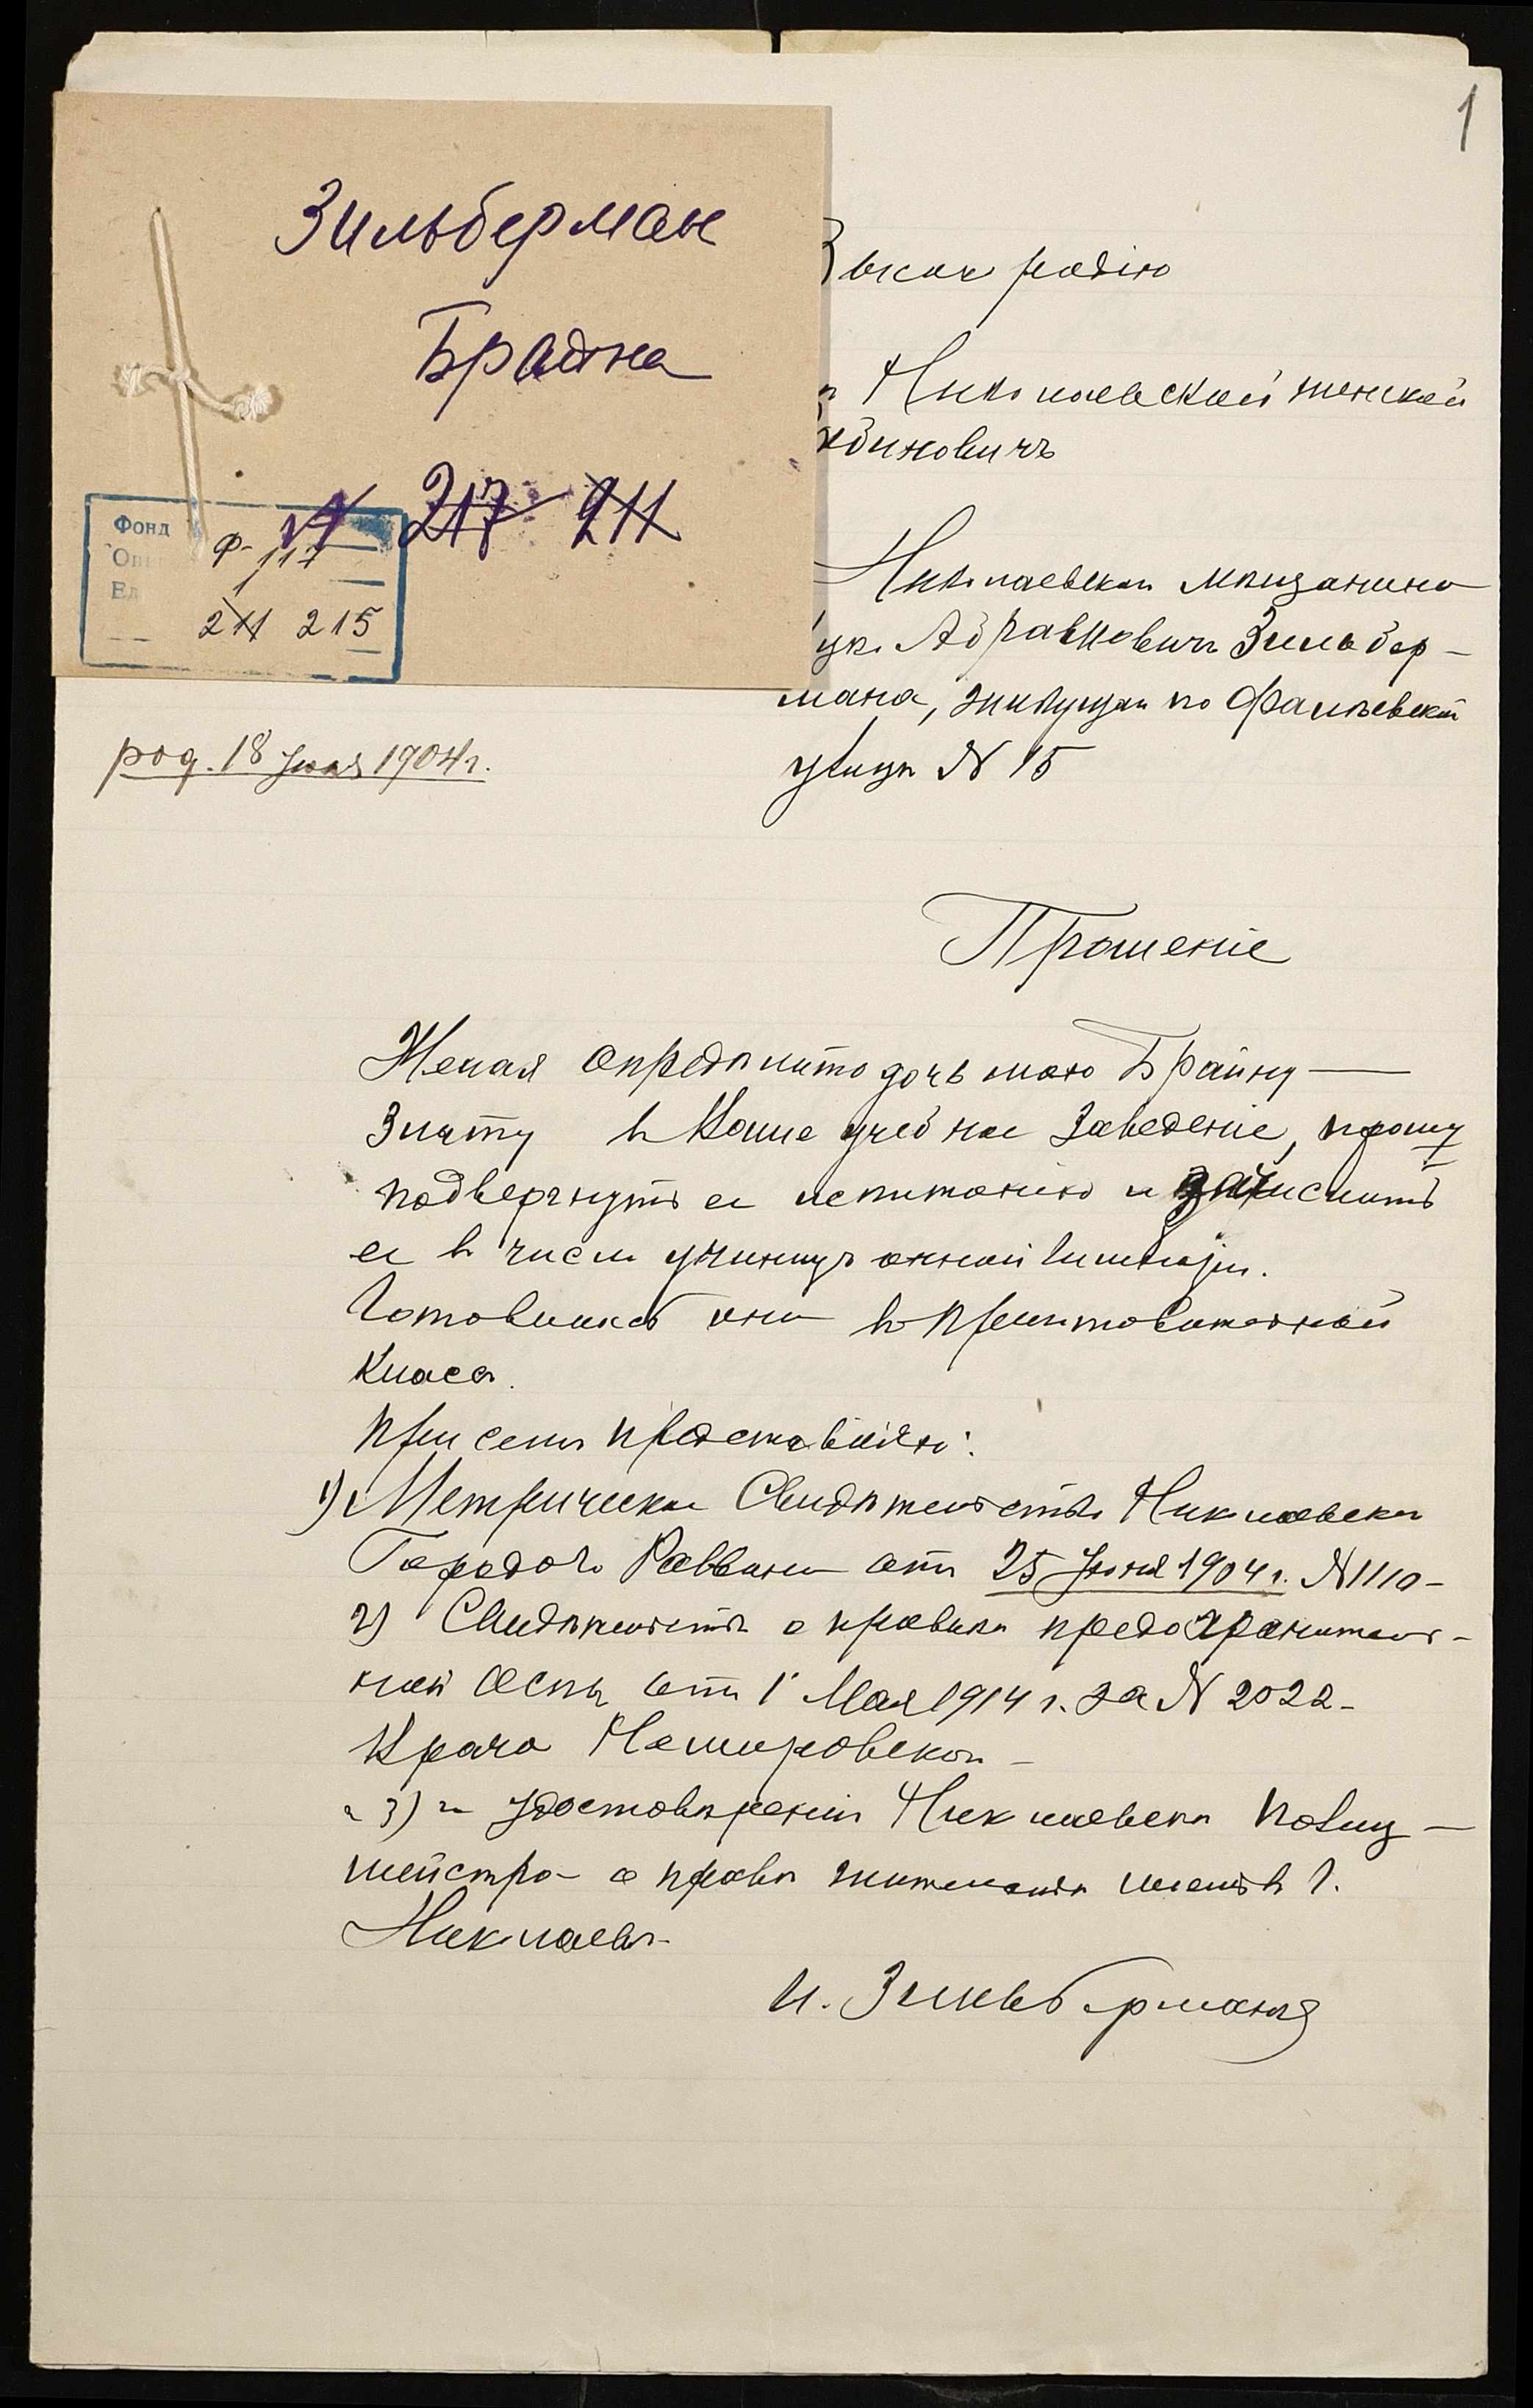 1
Зильберман
Брайна
217 211
Фонд Ф-117
Оп 1
Ед
211 215
род. 18 Июня 1904 г.
Николаевской женской
абиновичъ
Николаевскаго мѣщанина
Абрамовича Зильбер-
мана, живущаго по Фалѣевской
улицѣ № 15
Прошеніе
Желая опредѣлить дочь мою Брайну
Злату въ Ваше учебное заведеніе, прошу
подвергнуть ее испытанію и зачислить
ее въ число ученицъ онной Гимназіи.
Готовилась она въ приготовительный
классъ.
При семъ представляю:
1) Метрическое Свидѣтельство Николаевскаго
Городого Раввина отъ 25 Июня 1904 г. № 1110-
2) Свидѣтельство о прививкѣ предохранитель-
ной оспы отъ 1 Мая 1914 г. за № 2022-
Врача Немировскаго -
3) удостовѣреніе Николаевскаго Полиц-
мейстра о правѣ жительства въ г.
Николаевѣ-
И. Зильберманъ